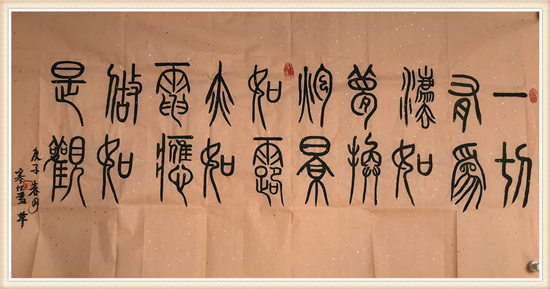 一切
有為
灋如
夢換
泡景
如露
亦如
電應
做如
是觀
庚子春月